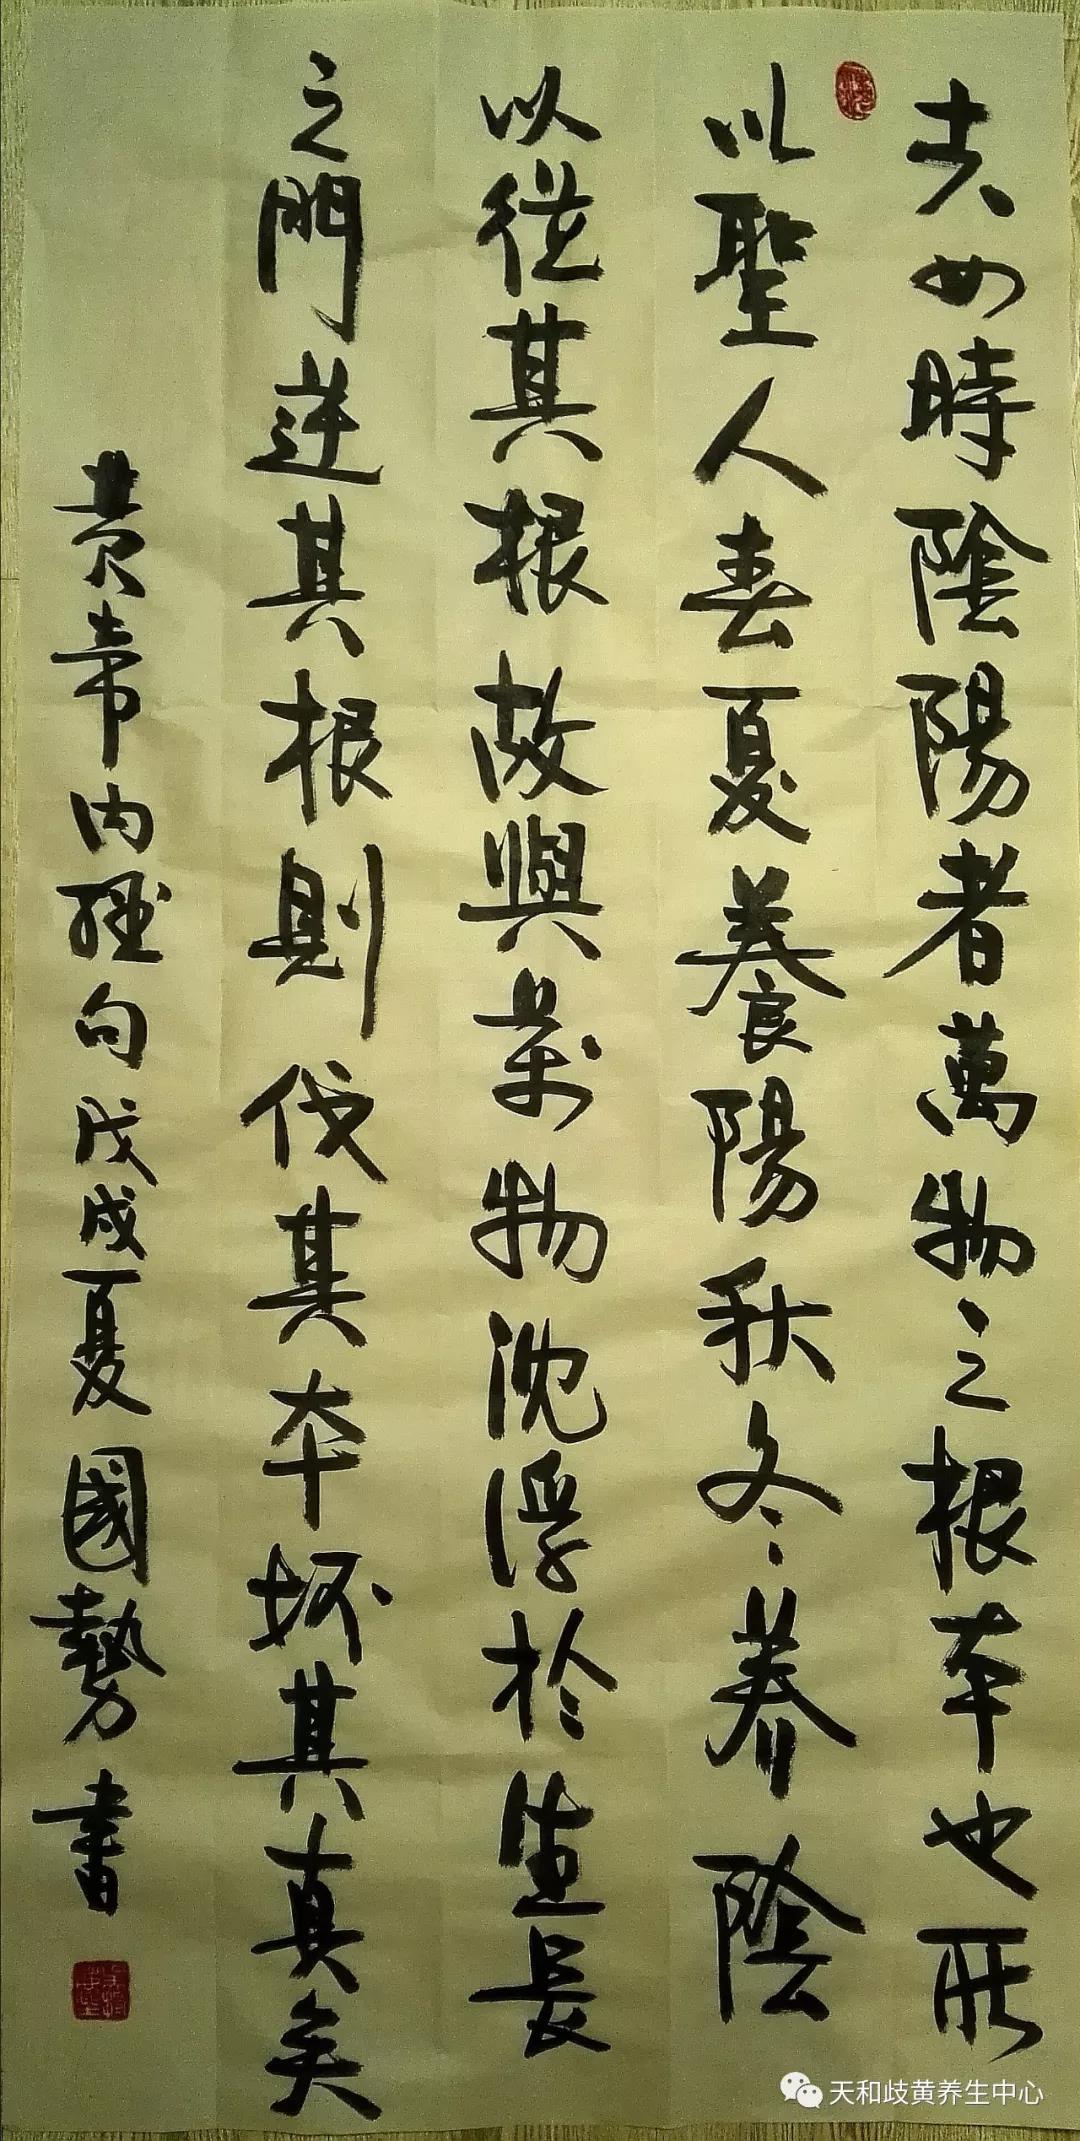 夫四時陰陽者萬物之根本也所
以聖人春夏養陽秋冬养陰
以從其根故與萬物沈浮於生長
之門逆其根則伐其本坏其真矣
黄帝内經句戊戌夏國勢書
天和歧黄养生中心